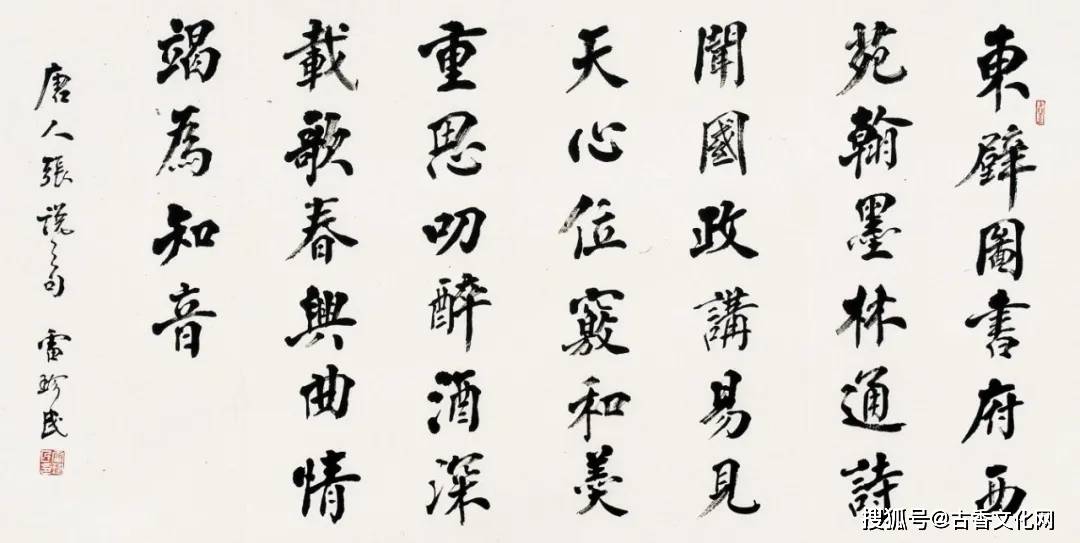 東壁圖書府西
苑翰墨林通詩
聞國政講易見
天心位竅和羹
重恩叨醉酒深
載歌春興曲情
竭為知音
唐人張說之句 雷珍民
搜狐号@古香文化网